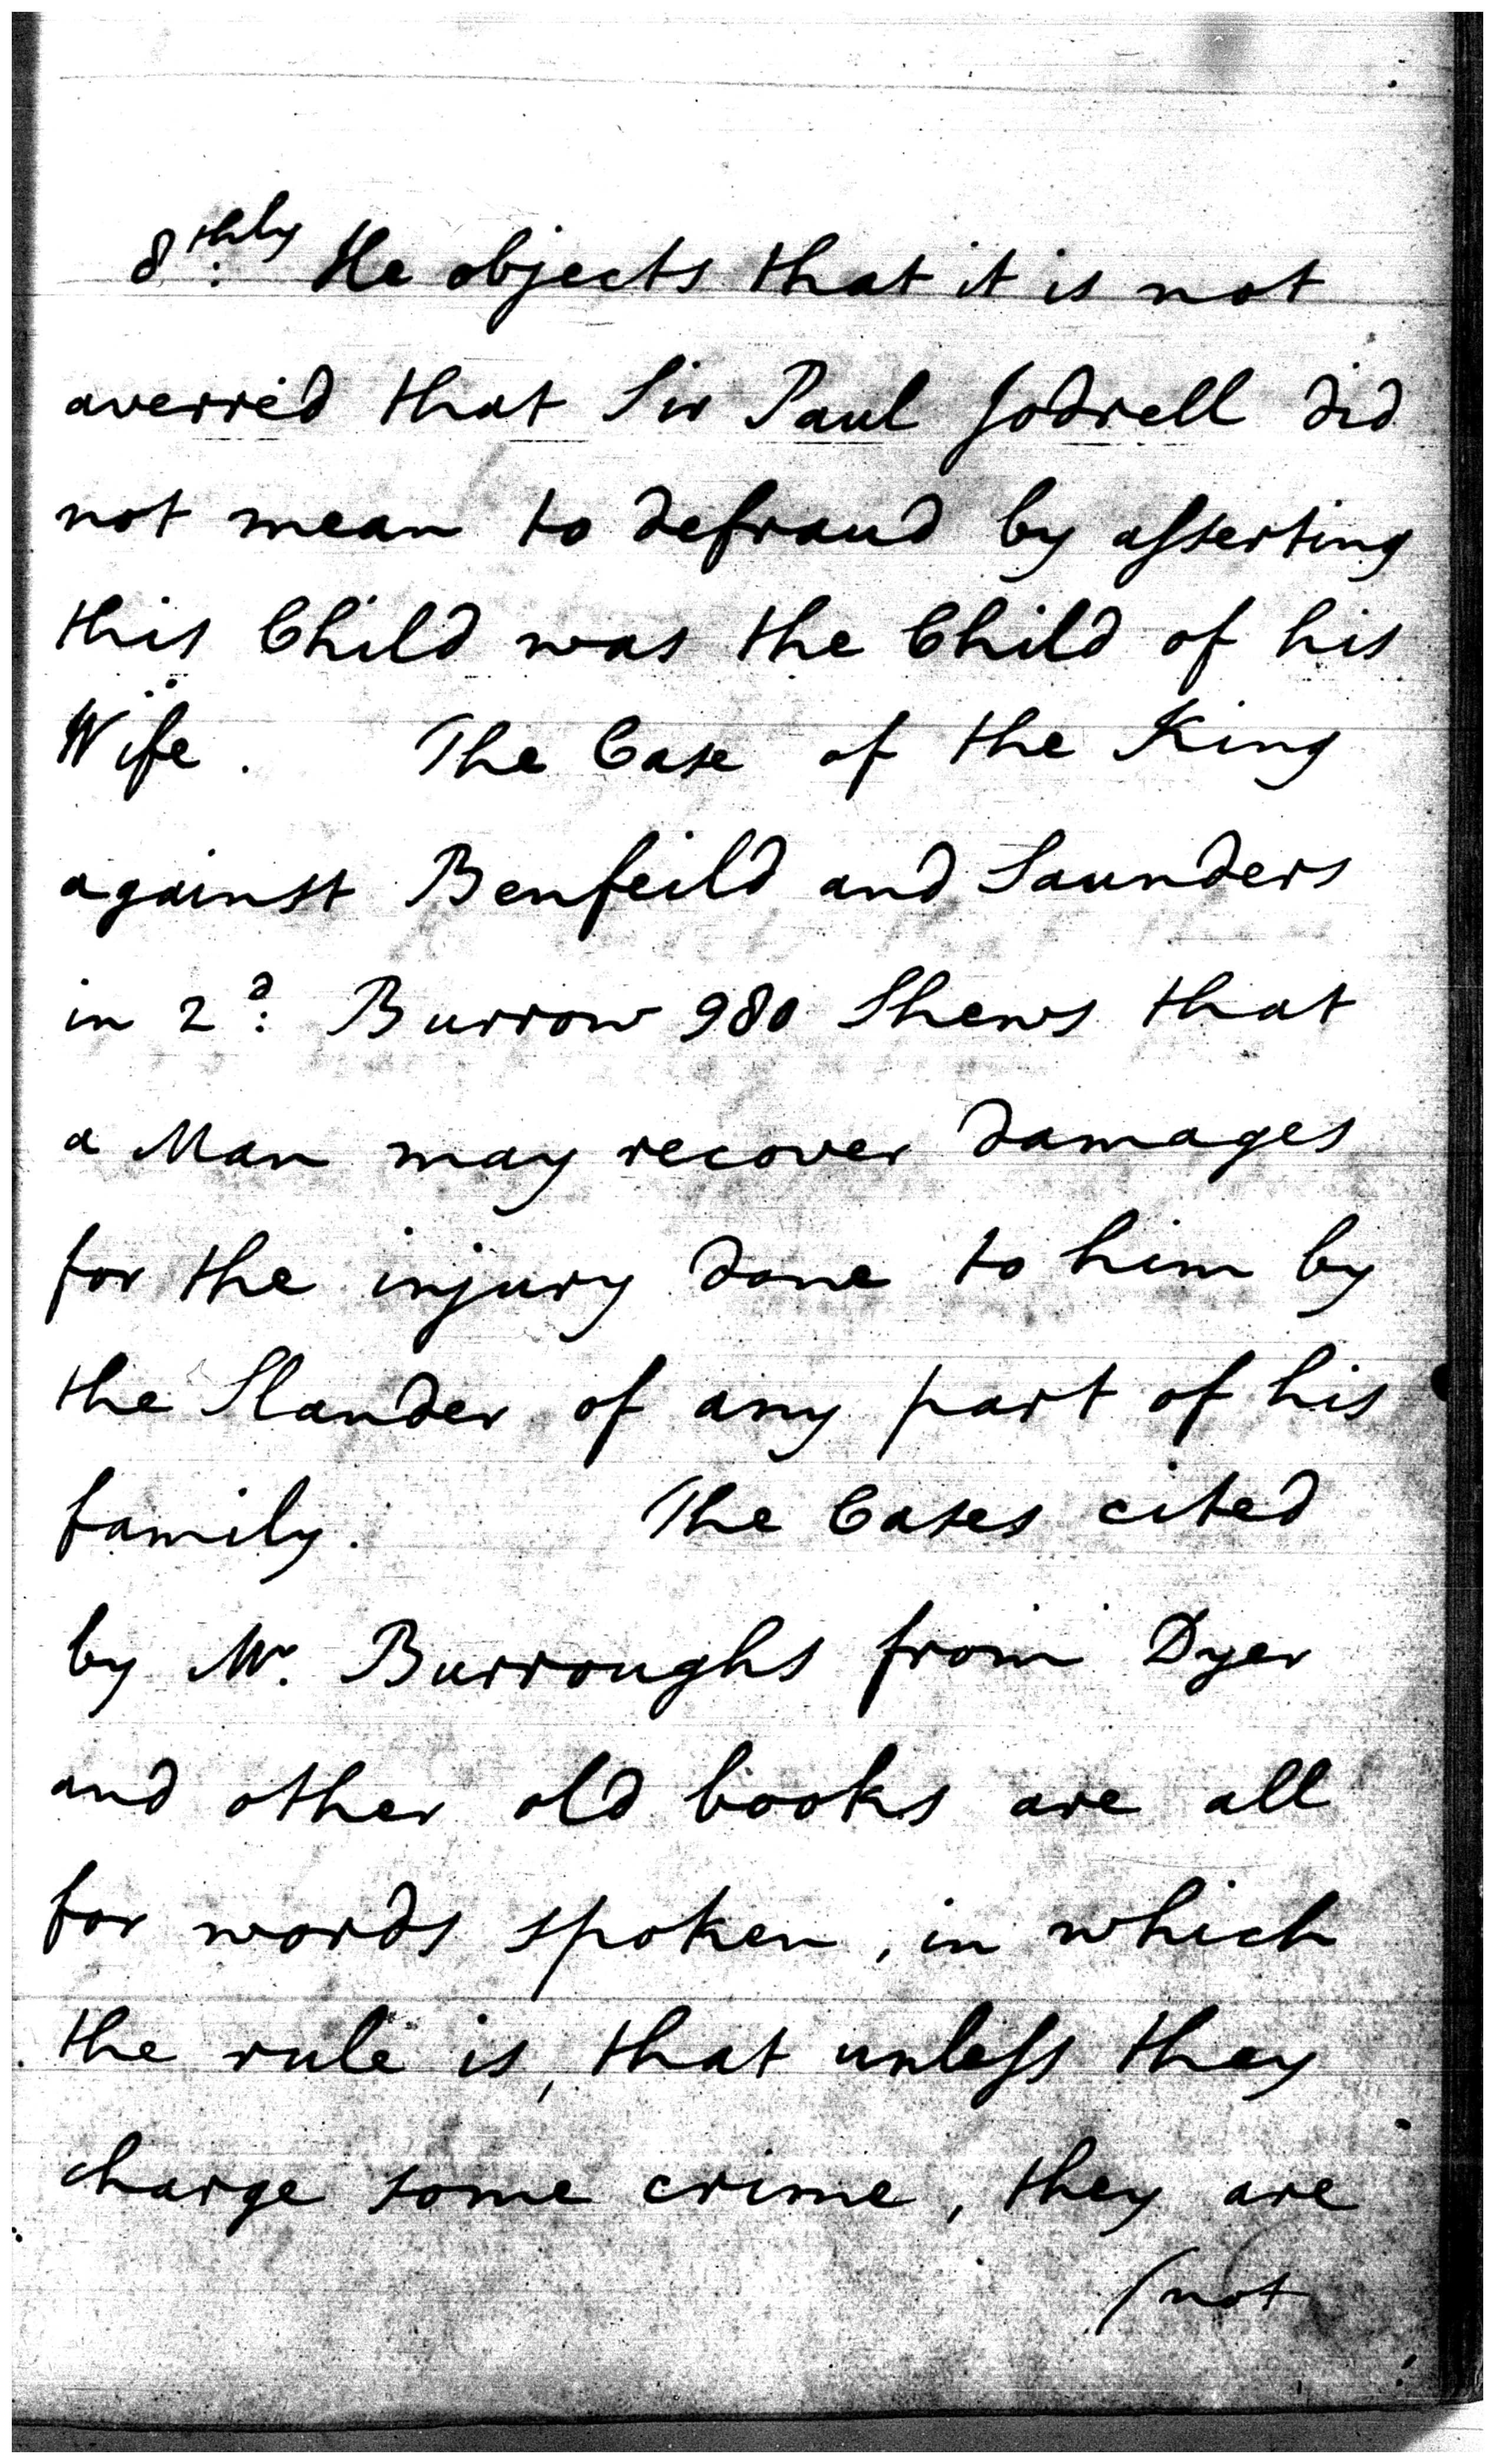 8.thly He objects that it is not
averred that Sir Paul Jodrell did
not mean to defraud by asserting
this Child was the Child of his
Wife. The Case of the King
against Benfeild and Saunders
in 2d: Burrow 980 Shews that
a Man may recover damages
for the injury done to him by
the Slander of any part of his
family. The Cases cited
by Mr. Burroughs from Dyer
and other old books are all
for words spoken, in which
the rule is, that unless they
charge some crime, they are
(not